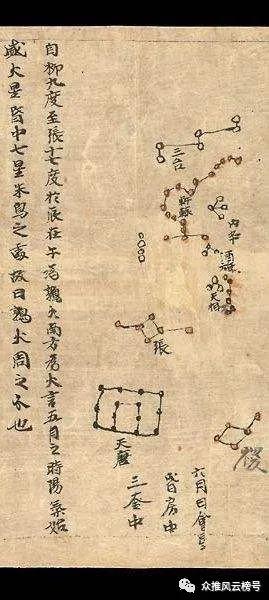 自柳九度至張十七度於辰在午為鶉火南方為火言五月之時陽氣始
盛火星昏中七星朱鳥之處故曰鶉火周之分也
三台
軒轅
內平
酒旗
天相
張
天廟
稷
六月日會
房中
奎中
众推风云榜号